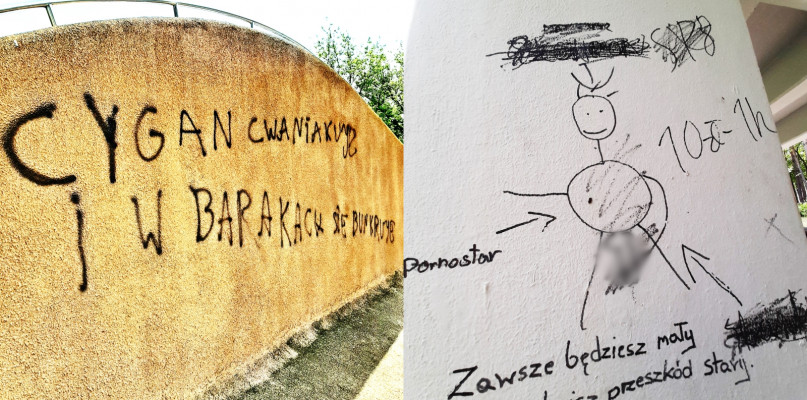 CYGAN CWANIAKUJE
I W BARAKACH SIĘ BUNKRUJE
10zł-1h
pornostar
Zawsze będziesz mały
przeszkód stary.